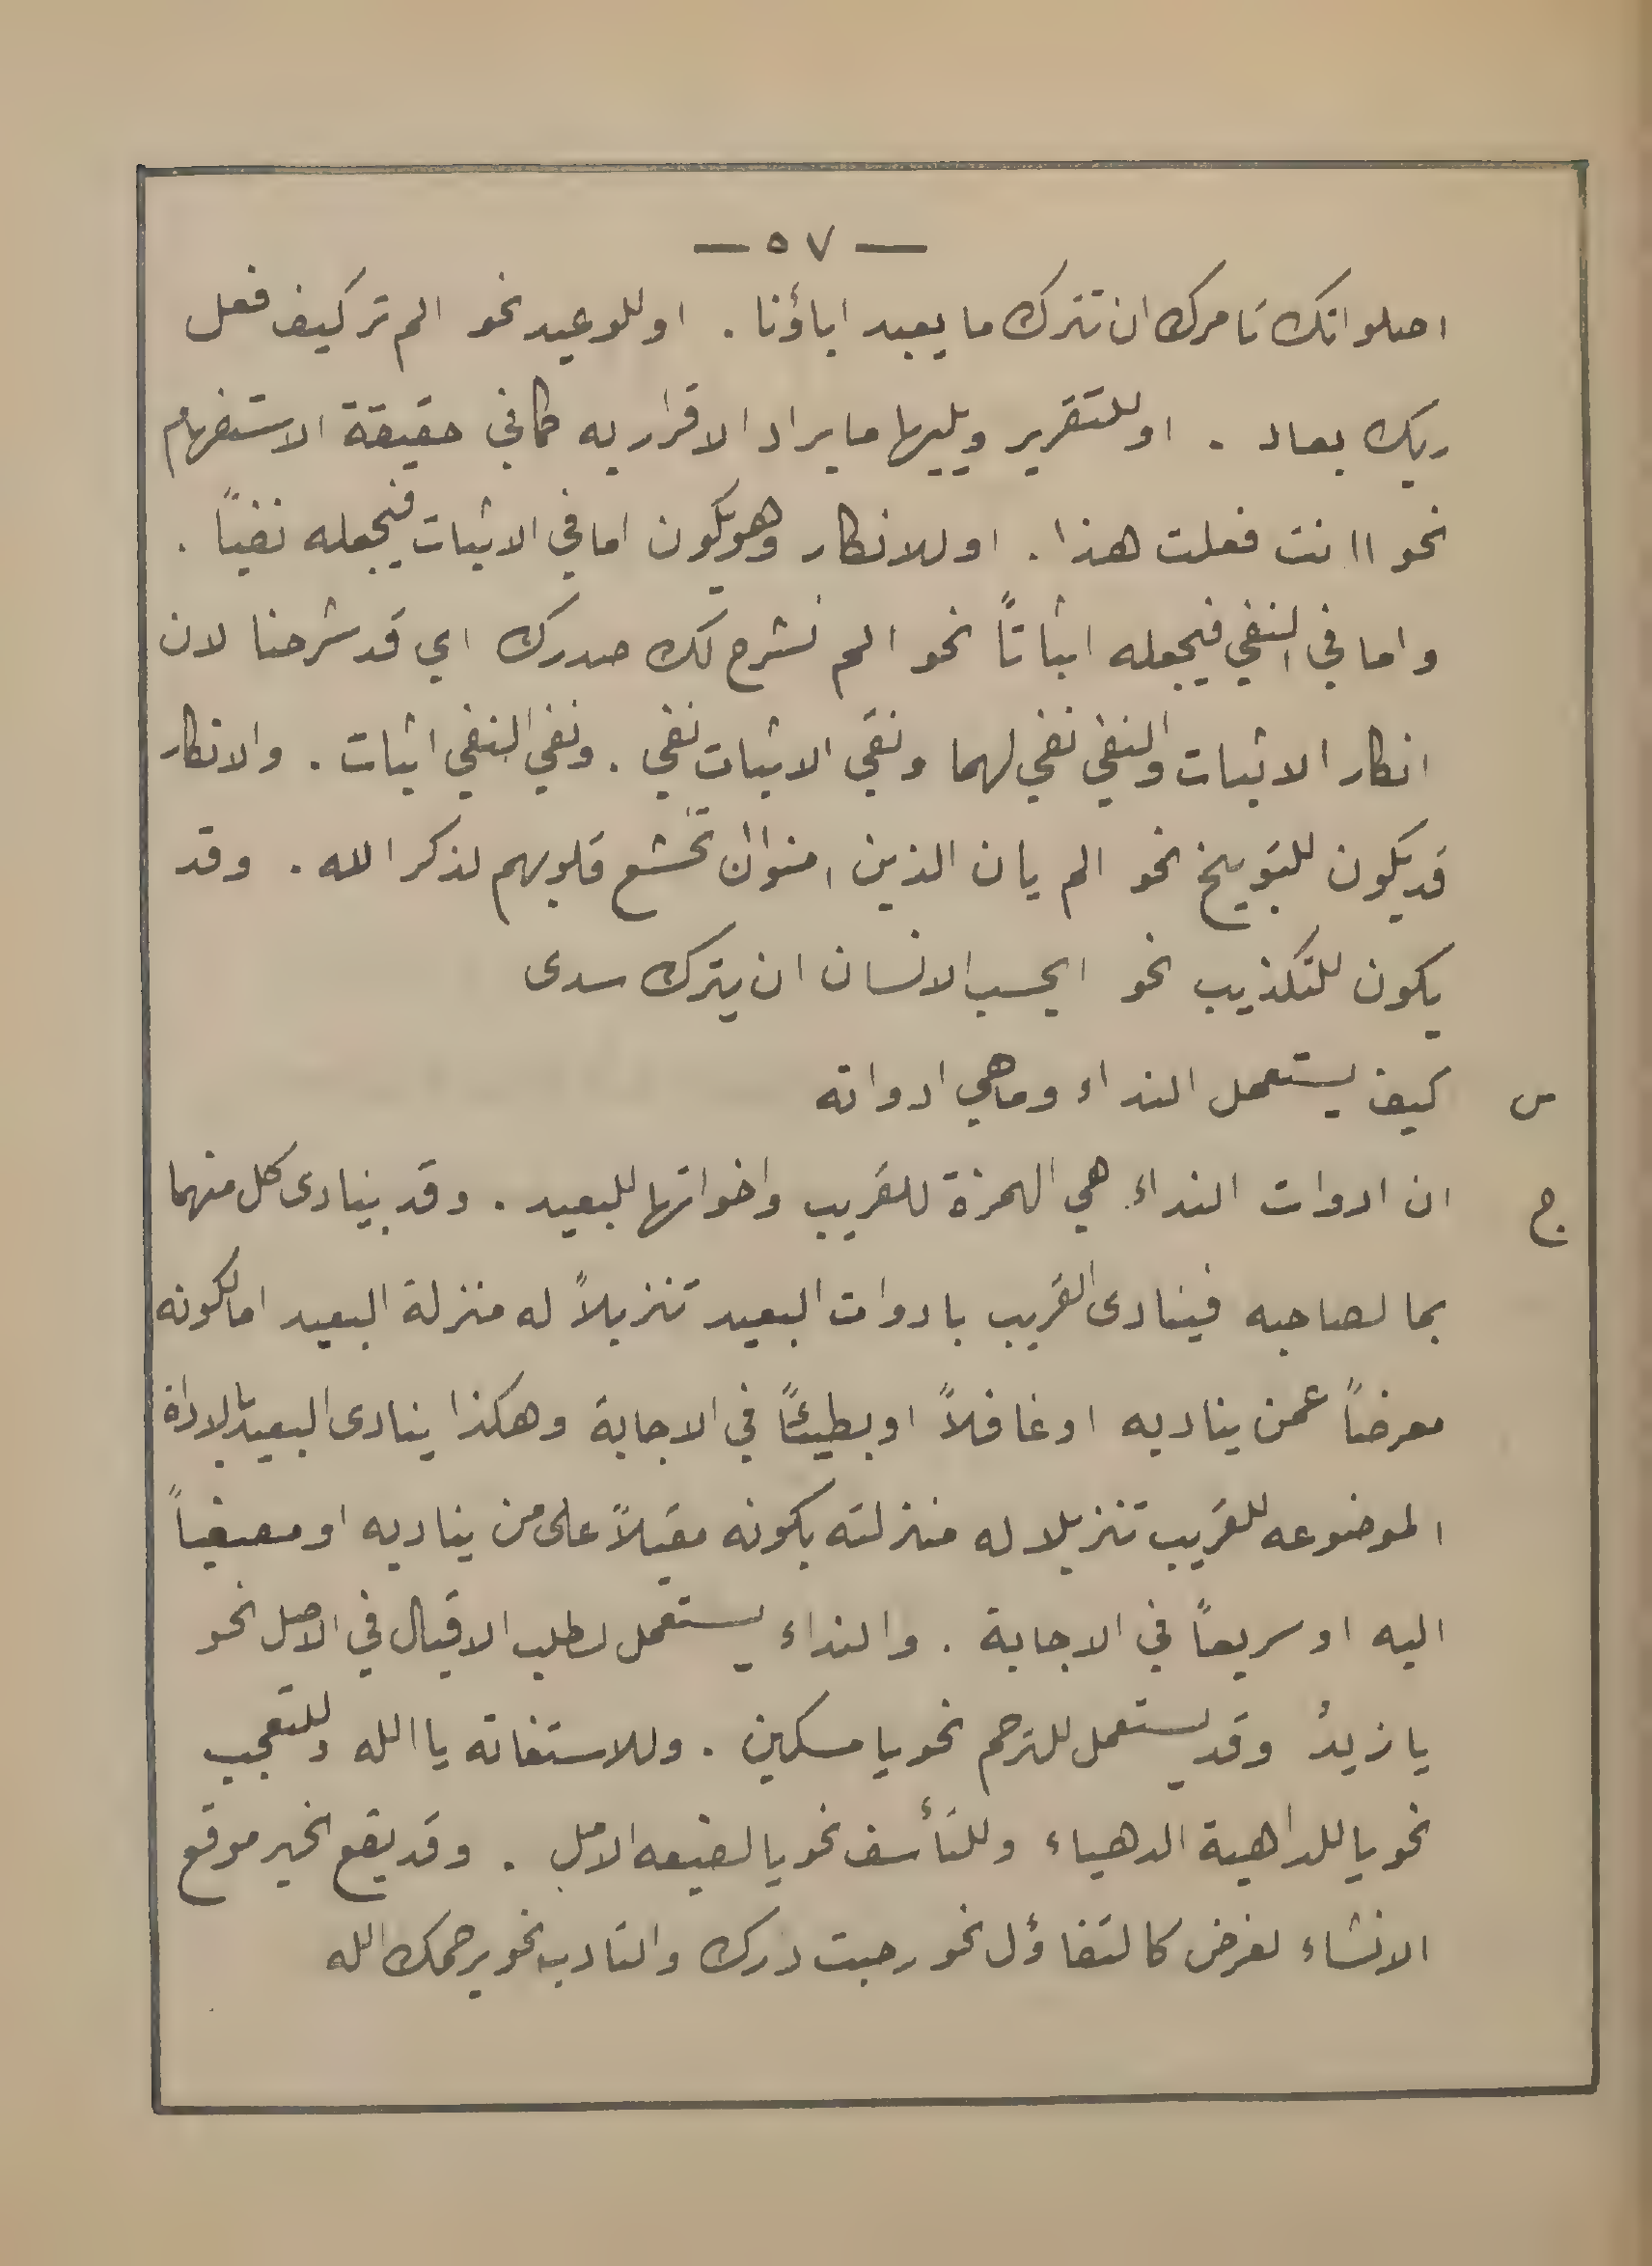 — ٥٧ —
اصلواتك تامرك ان تترك ما يعبد اباؤنا . او للوعيد نحو الم تر كيف فعل
ربك بعاد . او للتقرير ويليها ما يراد الاقرار به كما في حقيقة الاستفهام
نحو اانت فعلت هذا . او للانكار وهو يكون اما في الاثبات فيجعله نفياً .
واما في النفي فيجعله اثباتاً نحو الم نشرح لك صدرك اي قد شرحنا لان
انكار الاثبات والنفي نفي لهما ونفي الاثبات نفي . ونفي النفي اثبات . والانكار
قد يكون للتوبيخ نحو الم يان الذين امنوا ان تخشع قلوبهم لذكر الله . وقد
يكون للتكذيب نحو ايحسب الانسان ان يترك سدى
س كيف يستعمل النداء وما هي ادواته
ج ان ادوات النداء هي الهمزة للقريب واخواتها للبعيد . وقد ينادى كل منهما
بما لصاحبه فينادى القريب بادوات البعيد تنزيلاً له منزلة البعيد اما لكونه
معرضاً عمن يناديه او غافلاً او بطيئاً في الاجابة وهكذا ينادى البعيد بالاداة
الموضوعه للقريب تنزيلا له منزلته بكونه مقبلاً على من يناديه او مصغياً
اليه او سريعاً في الاجابة . والنداء يستعمل لطلب الاقبال في الاصل نحو
يا زيدُ وقد يستعمل للترحم نحو يا مسكين . وللاستغاثه يا الله وللتعجب
نحو يا للداهية الدهياء وللتأسف نحو يا لضيعه الامل . وقد يقع الخبر موقع
الانشاء لغرض كالتفاؤل نحو رحبت دارك والتادب نحو يرحمك الله